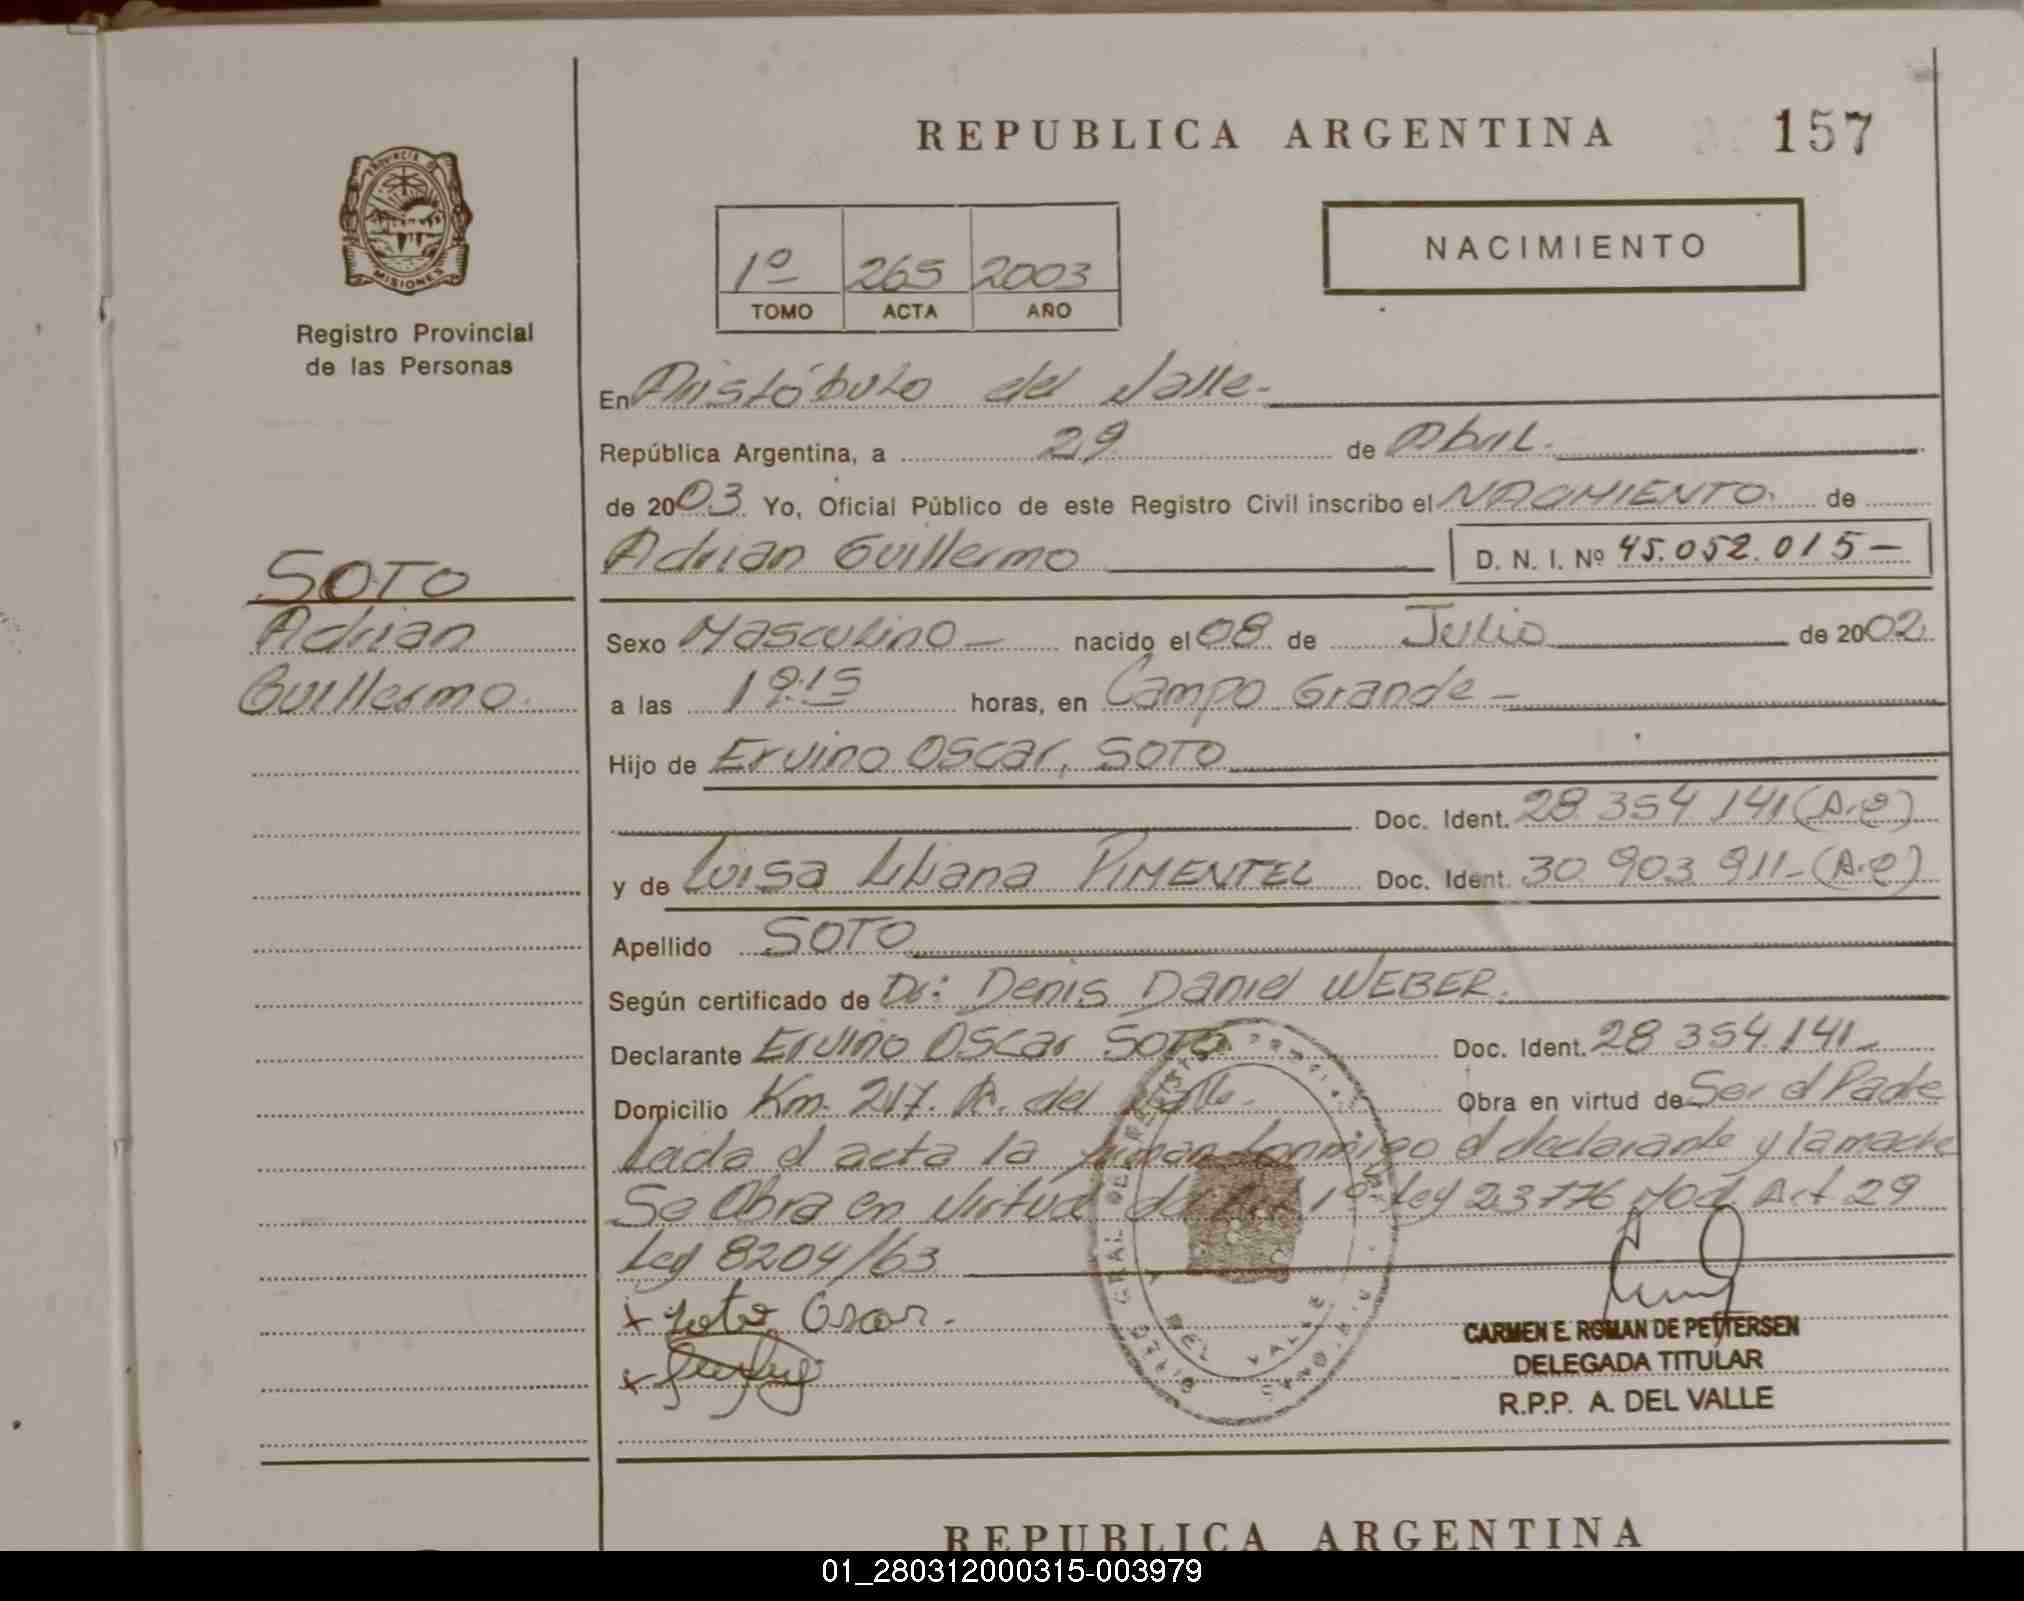 REPUBLICA ARGENTINA 157
PROVINCIA DE
MISIONES
Registro Provincial
de las Personas
1º 265 2003
TOMO ACTA AÑO
NACIMIENTO
En Aristóbulo del Valle-
República Argentina, a 29 de Abril.
de 2003. Yo, Oficial Público de este Registro Civil inscribo el NACIMIENTO. de
Adrian Guillermo D. N. I. Nº 45.052.015-
SOTO
Adrian
Guillermo.
Sexo Masculino- nacido el 08 de Julio de 2002.
a las 19:15 horas, en Campo Grande-
Hijo de Ervino Oscar, SOTO
Doc. Ident. 28 354 141 (A.e)
y de Luisa Liliana PIMENTEL Doc. Ident. 30 903 911- (A.e)
Apellido SOTO
Según certificado de Dr: Denis Daniel WEBER.
Declarante Ervino Oscar SOTO Doc. Ident. 28 354.141-
Domicilio Km. 217. A. del Valle. Obra en virtud de Ser el Padre
Leida el acta la firman conmigo el declarante y la madre
Se Obra en virtud de Art 1º Ley 23776 Mod. Art 29
Ley 8204/63
x Soto Oscar.
x
DEL VALLE
CARMEN E. ROMAN DE PETTERSEN
DELEGADA TITULAR
R.P.P. A. DEL VALLE
REPUBLICA ARGENTINA
01_280312000315-003979